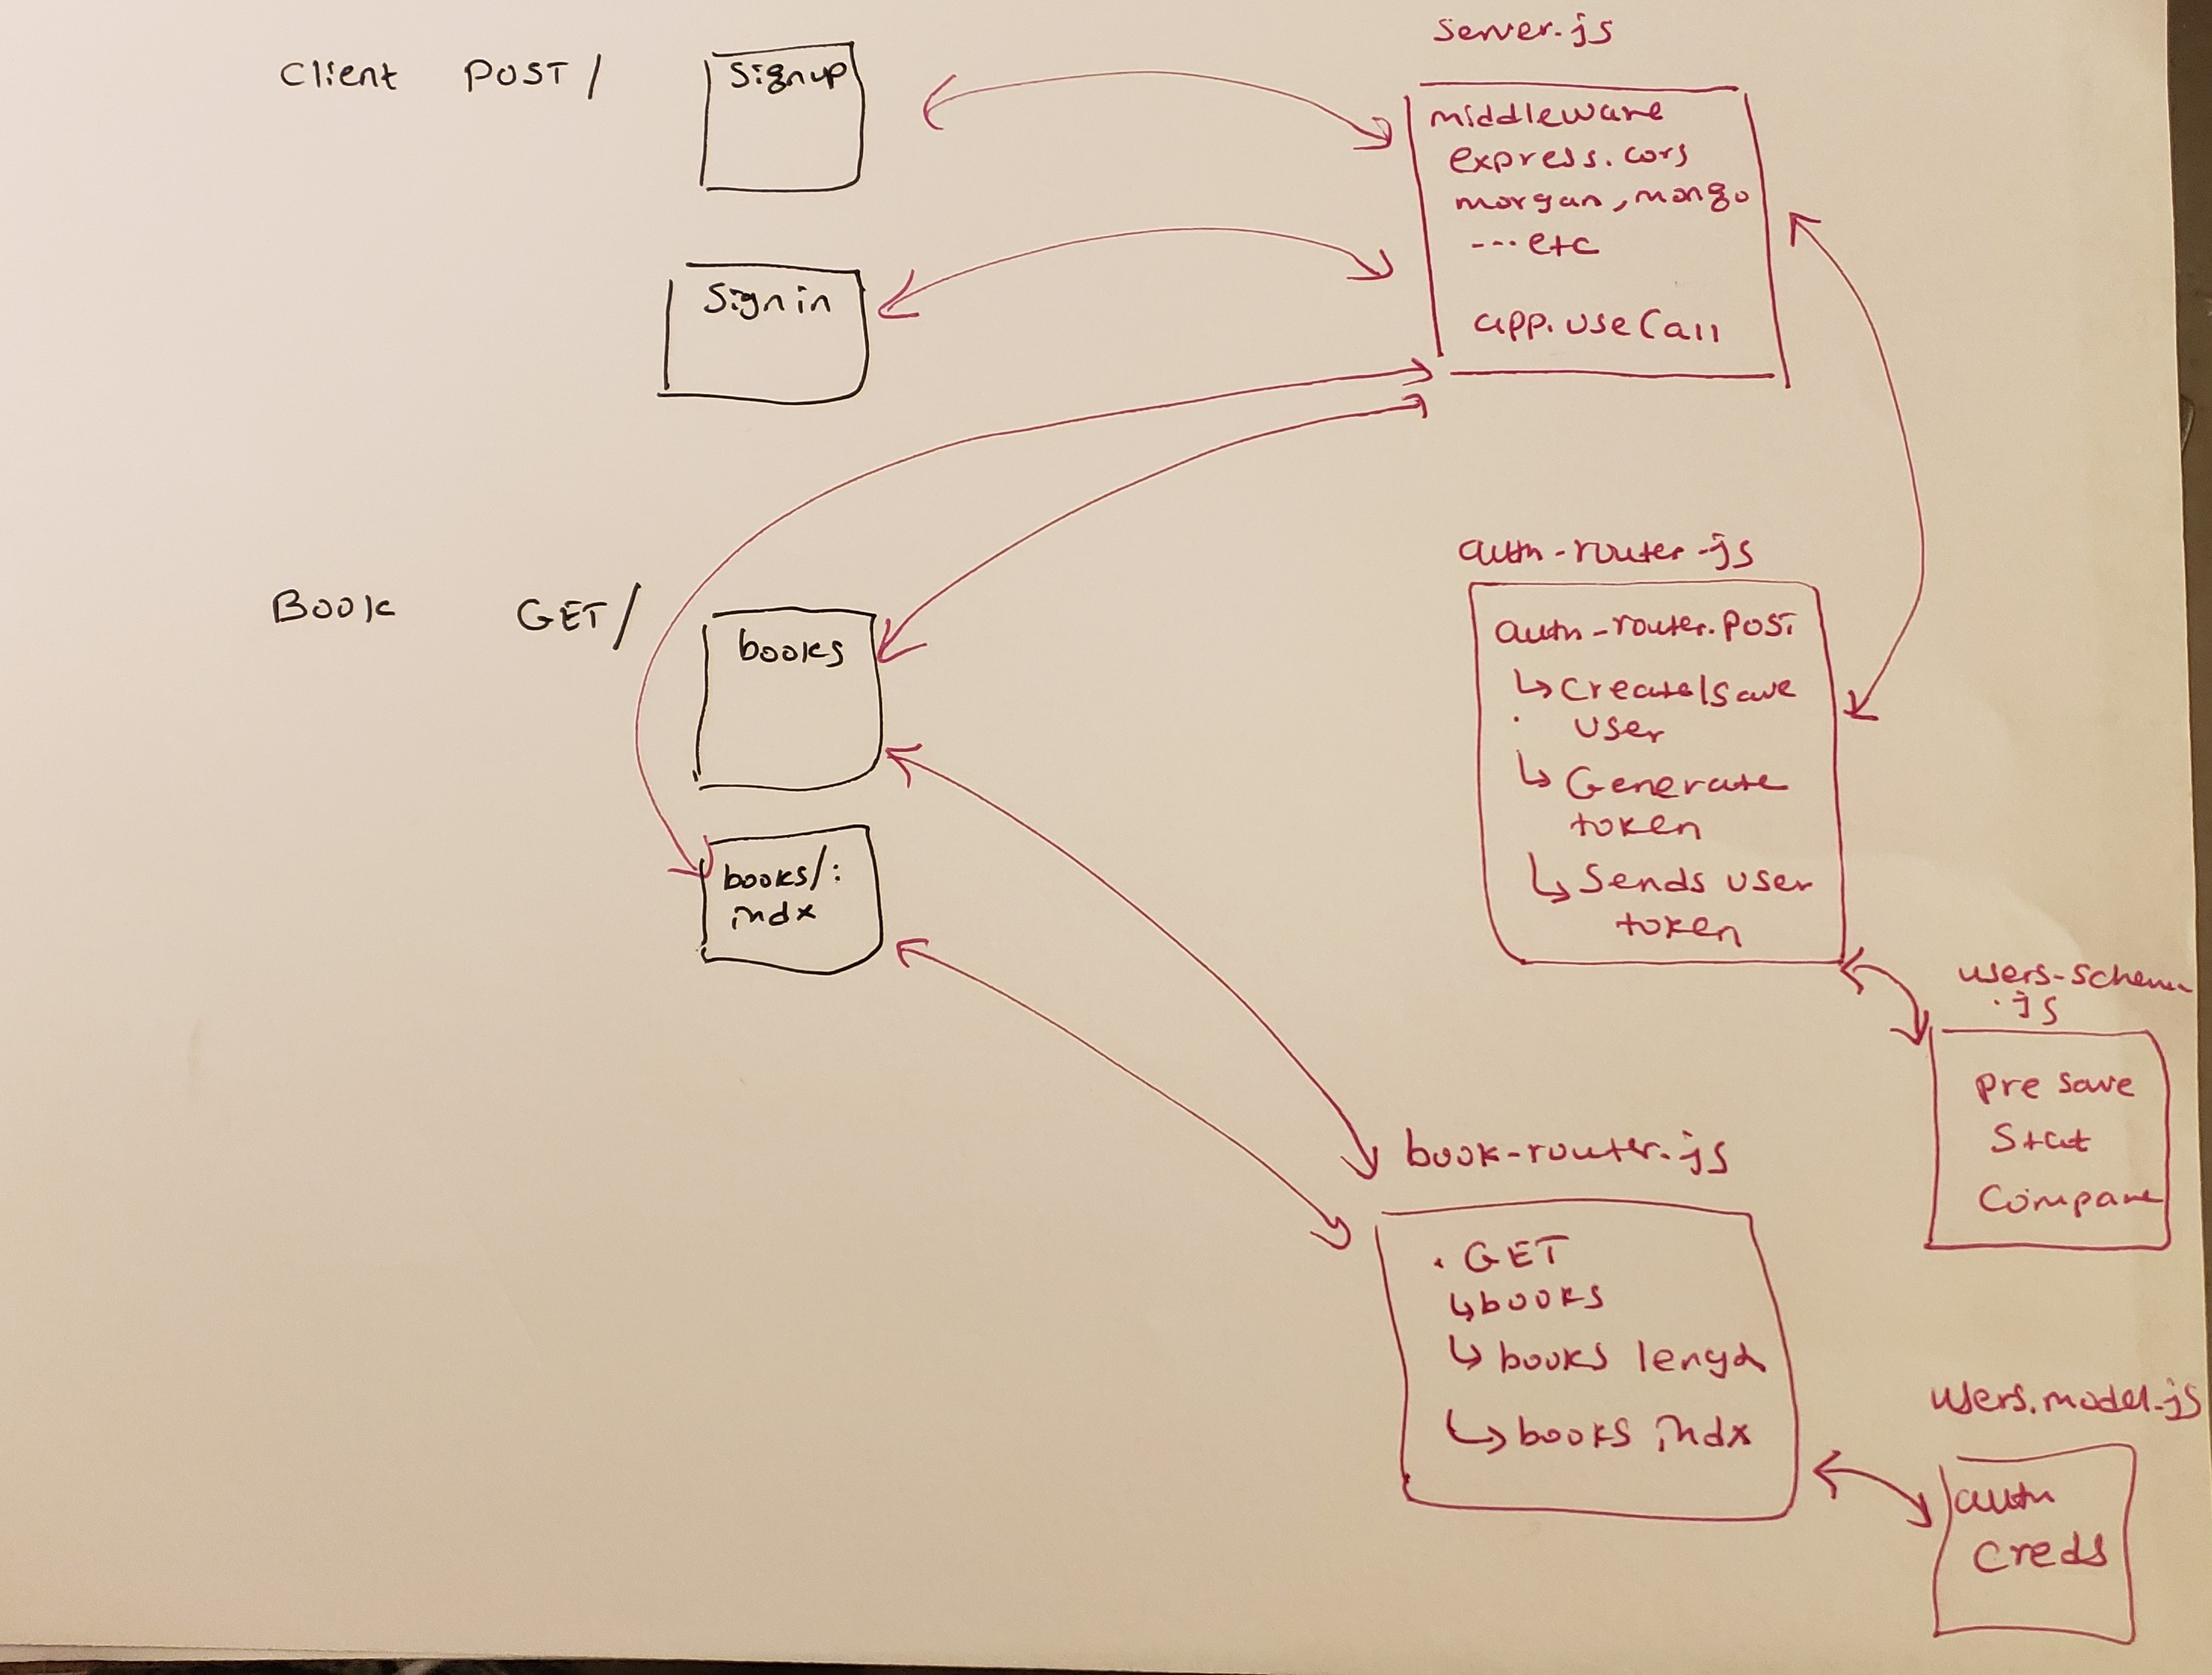 Client POST /
Signup
Signin
Book GET /
books
books/:
indx
server.js
middleware
express.cors
morgan, mongo
---etc
app.use Call
auth-router.js
auth-router.POST
↳ Create/save
user
↳ Generate
token
↳ Sends user
token
users-schema
.js
pre save
Stat
Compare
book-router.js
. GET
↳ books
↳ books length
↳ books indx
users.model.js
auth
creds